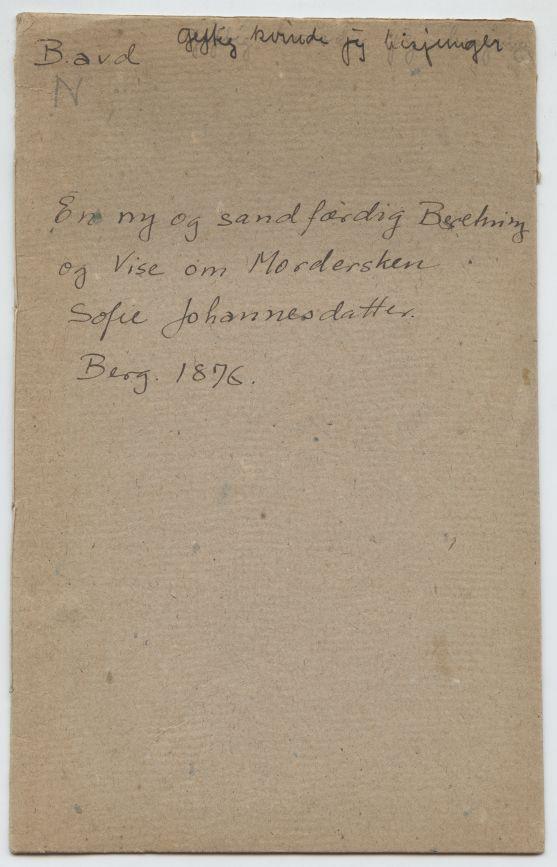 B. avd
N
En ny og sandfærdig Beretning
og Vise om Mordersken
Sofie Johannesdatter.
Berg. 1876.